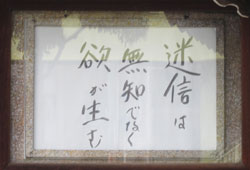 迷信は
無知でなく
欲が生む